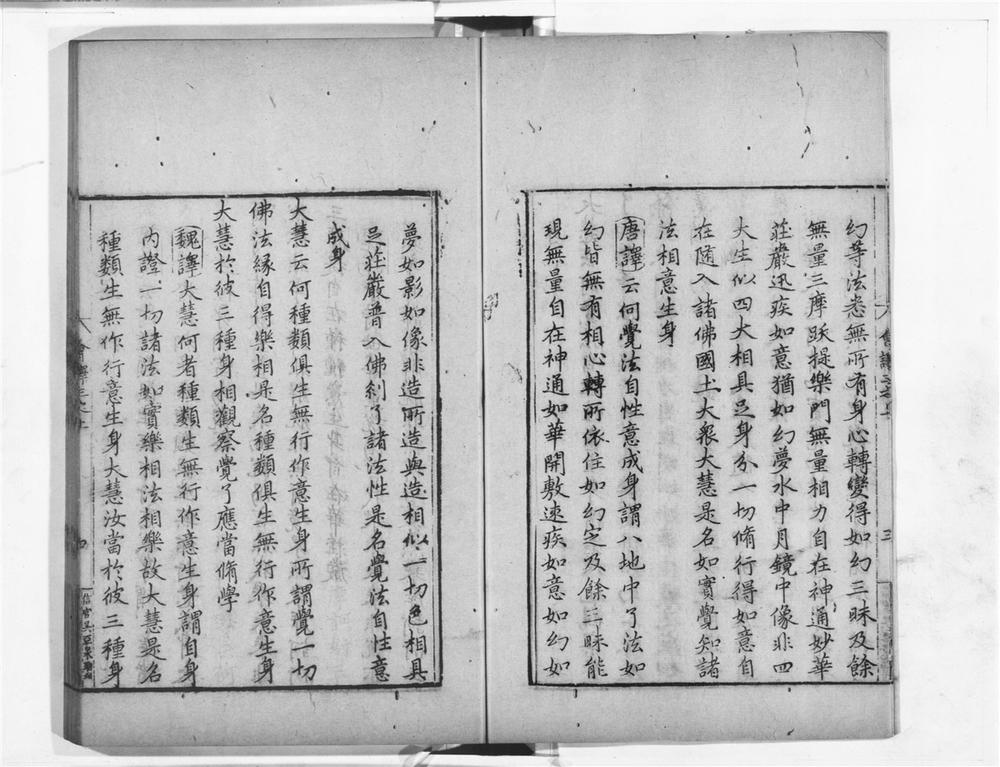 幻等法悉無所有身心轉變得如幻三昧及餘
無量三摩跋提樂門無量相力自在神通妙華
莊嚴迅疾如意猶如幻夢水中月鏡中像非四
大生似四大相具足身分一切脩行得如意自
在隨入諸佛國土大衆大慧是名如實覺知諸
法相意生身
唐譯云何覺法自性意成身謂八地中了法如
幻皆無有相心轉所依住如幻定及餘三昧能
現無量自在神通如華開敷速疾如意如幻如
三
夢如影如像非造所造與造相似一切色相具
足莊嚴普入佛刹了諸法性是名覺法自性意
成身
大慧云何種類俱生無行作意生身所謂覺一切
佛法緣自得樂相是名種類俱生無行作意生身
大慧於彼三種身相觀察覺了應當脩學
魏譯大慧何者種類生無行作意生身謂自身
內證一切諸法如實樂相法相樂故大慧是名
種類生無作行意生身大慧汝當於彼三種身
四